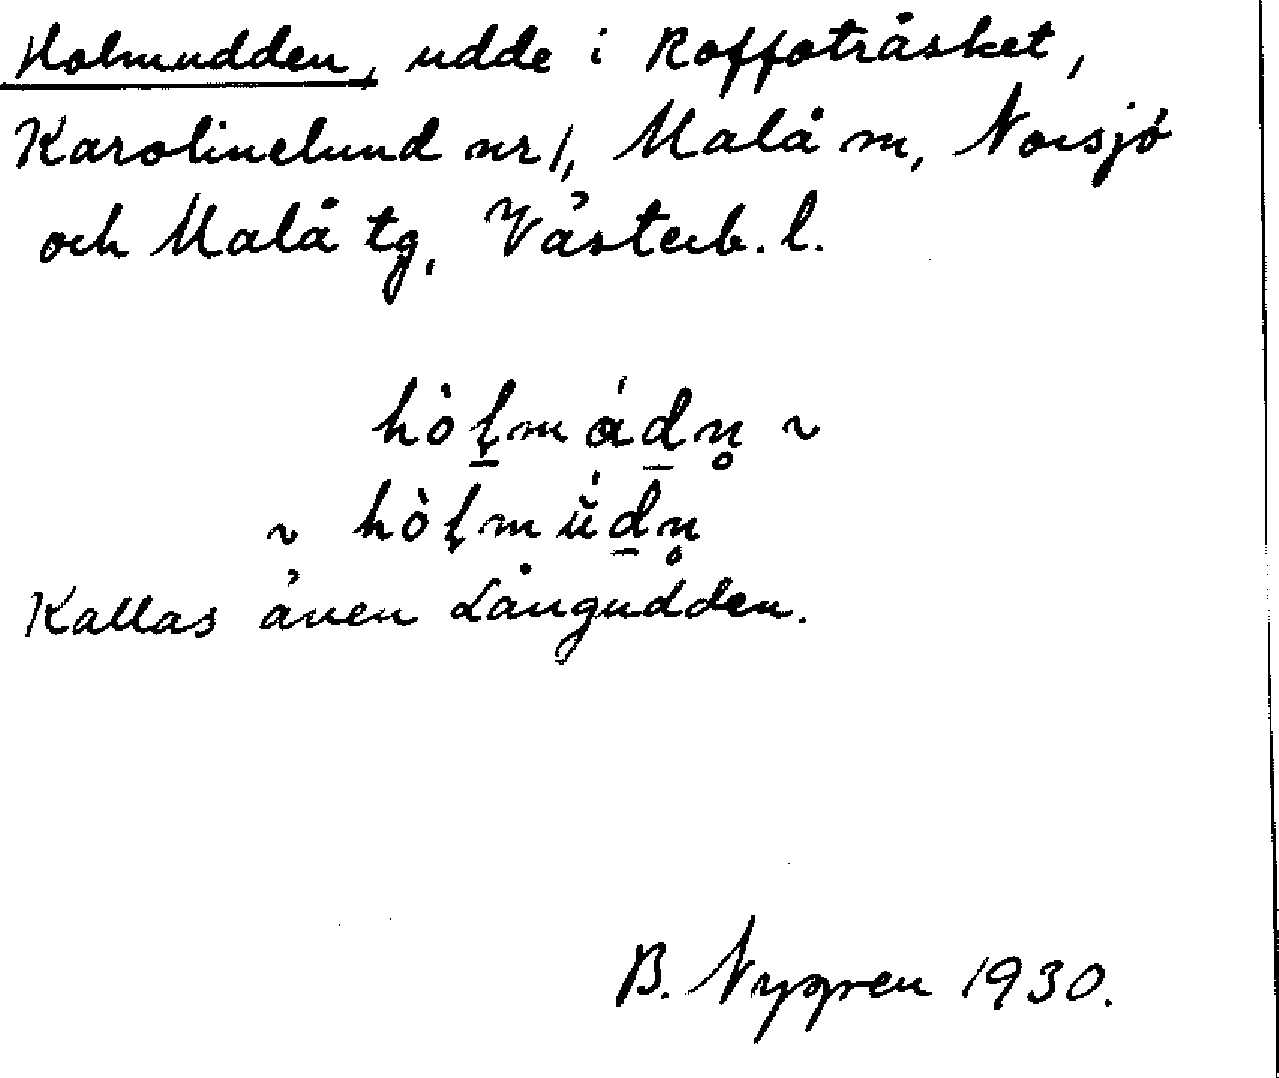 Holmudden, udde i Roffoträsket,
Karolinelund nr 1, Malå sn, Norsjö
och Malå tg, Västerb. l.
Kallas även Långudden.
B. Nygren 1930.